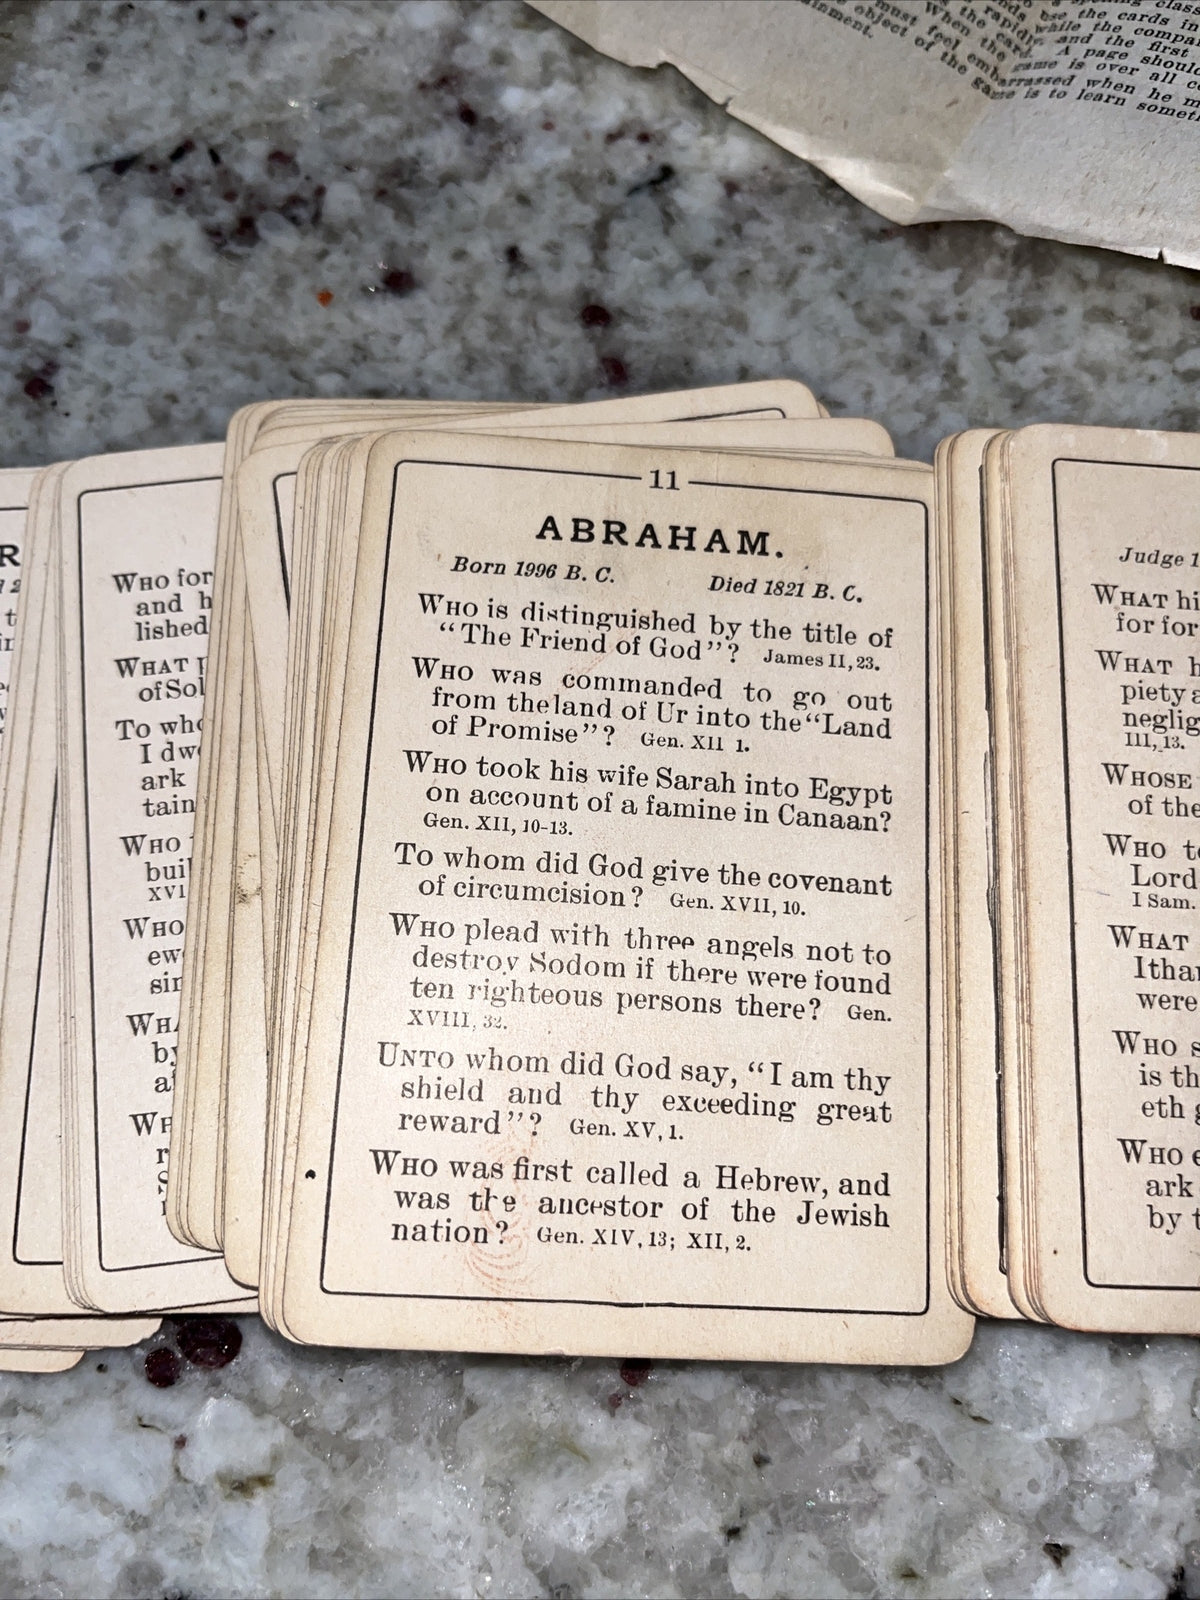 use the cards in
while the compan
and the first
A page should
When the
game is over all
must feel embarrassed when he
object of the game is to learn someth
ainment.
11
ABRAHAM.
Born 1996 B. C. Died 1821 B. C.
WHO is distinguished by the title of
"The Friend of God"? James II, 23.
WHO was commanded to go out
from the land of Ur into the "Land
of Promise"? Gen. XII 1.
WHO took his wife Sarah into Egypt
on account of a famine in Canaan?
Gen. XII, 10-13.
To whom did God give the covenant
of circumcision? Gen. XVII, 10.
WHO plead with three angels not to
destroy Sodom if there were found
ten righteous persons there? Gen.
XVIII, 32.
UNTO whom did God say, "I am thy
shield and thy exceeding great
reward"? Gen. XV, 1.
WHO was first called a Hebrew, and
was the ancestor of the Jewish
nation? Gen. XIV, 13; XII, 2.
WHO for
and h
lished
WHAT
of Sol
To who
I dw
ark
tain
WHO
buil
XVI
WHO
ew
sin
WHA
by
WH
Judge 1
WHAT hi
for for
WHAT h
piety a
neglig
III, 13.
WHOSE
of the
WHO to
Lord
I Sam.
WHAT
Itha
were
WHO s
is th
eth g
WHO e
ark
by t